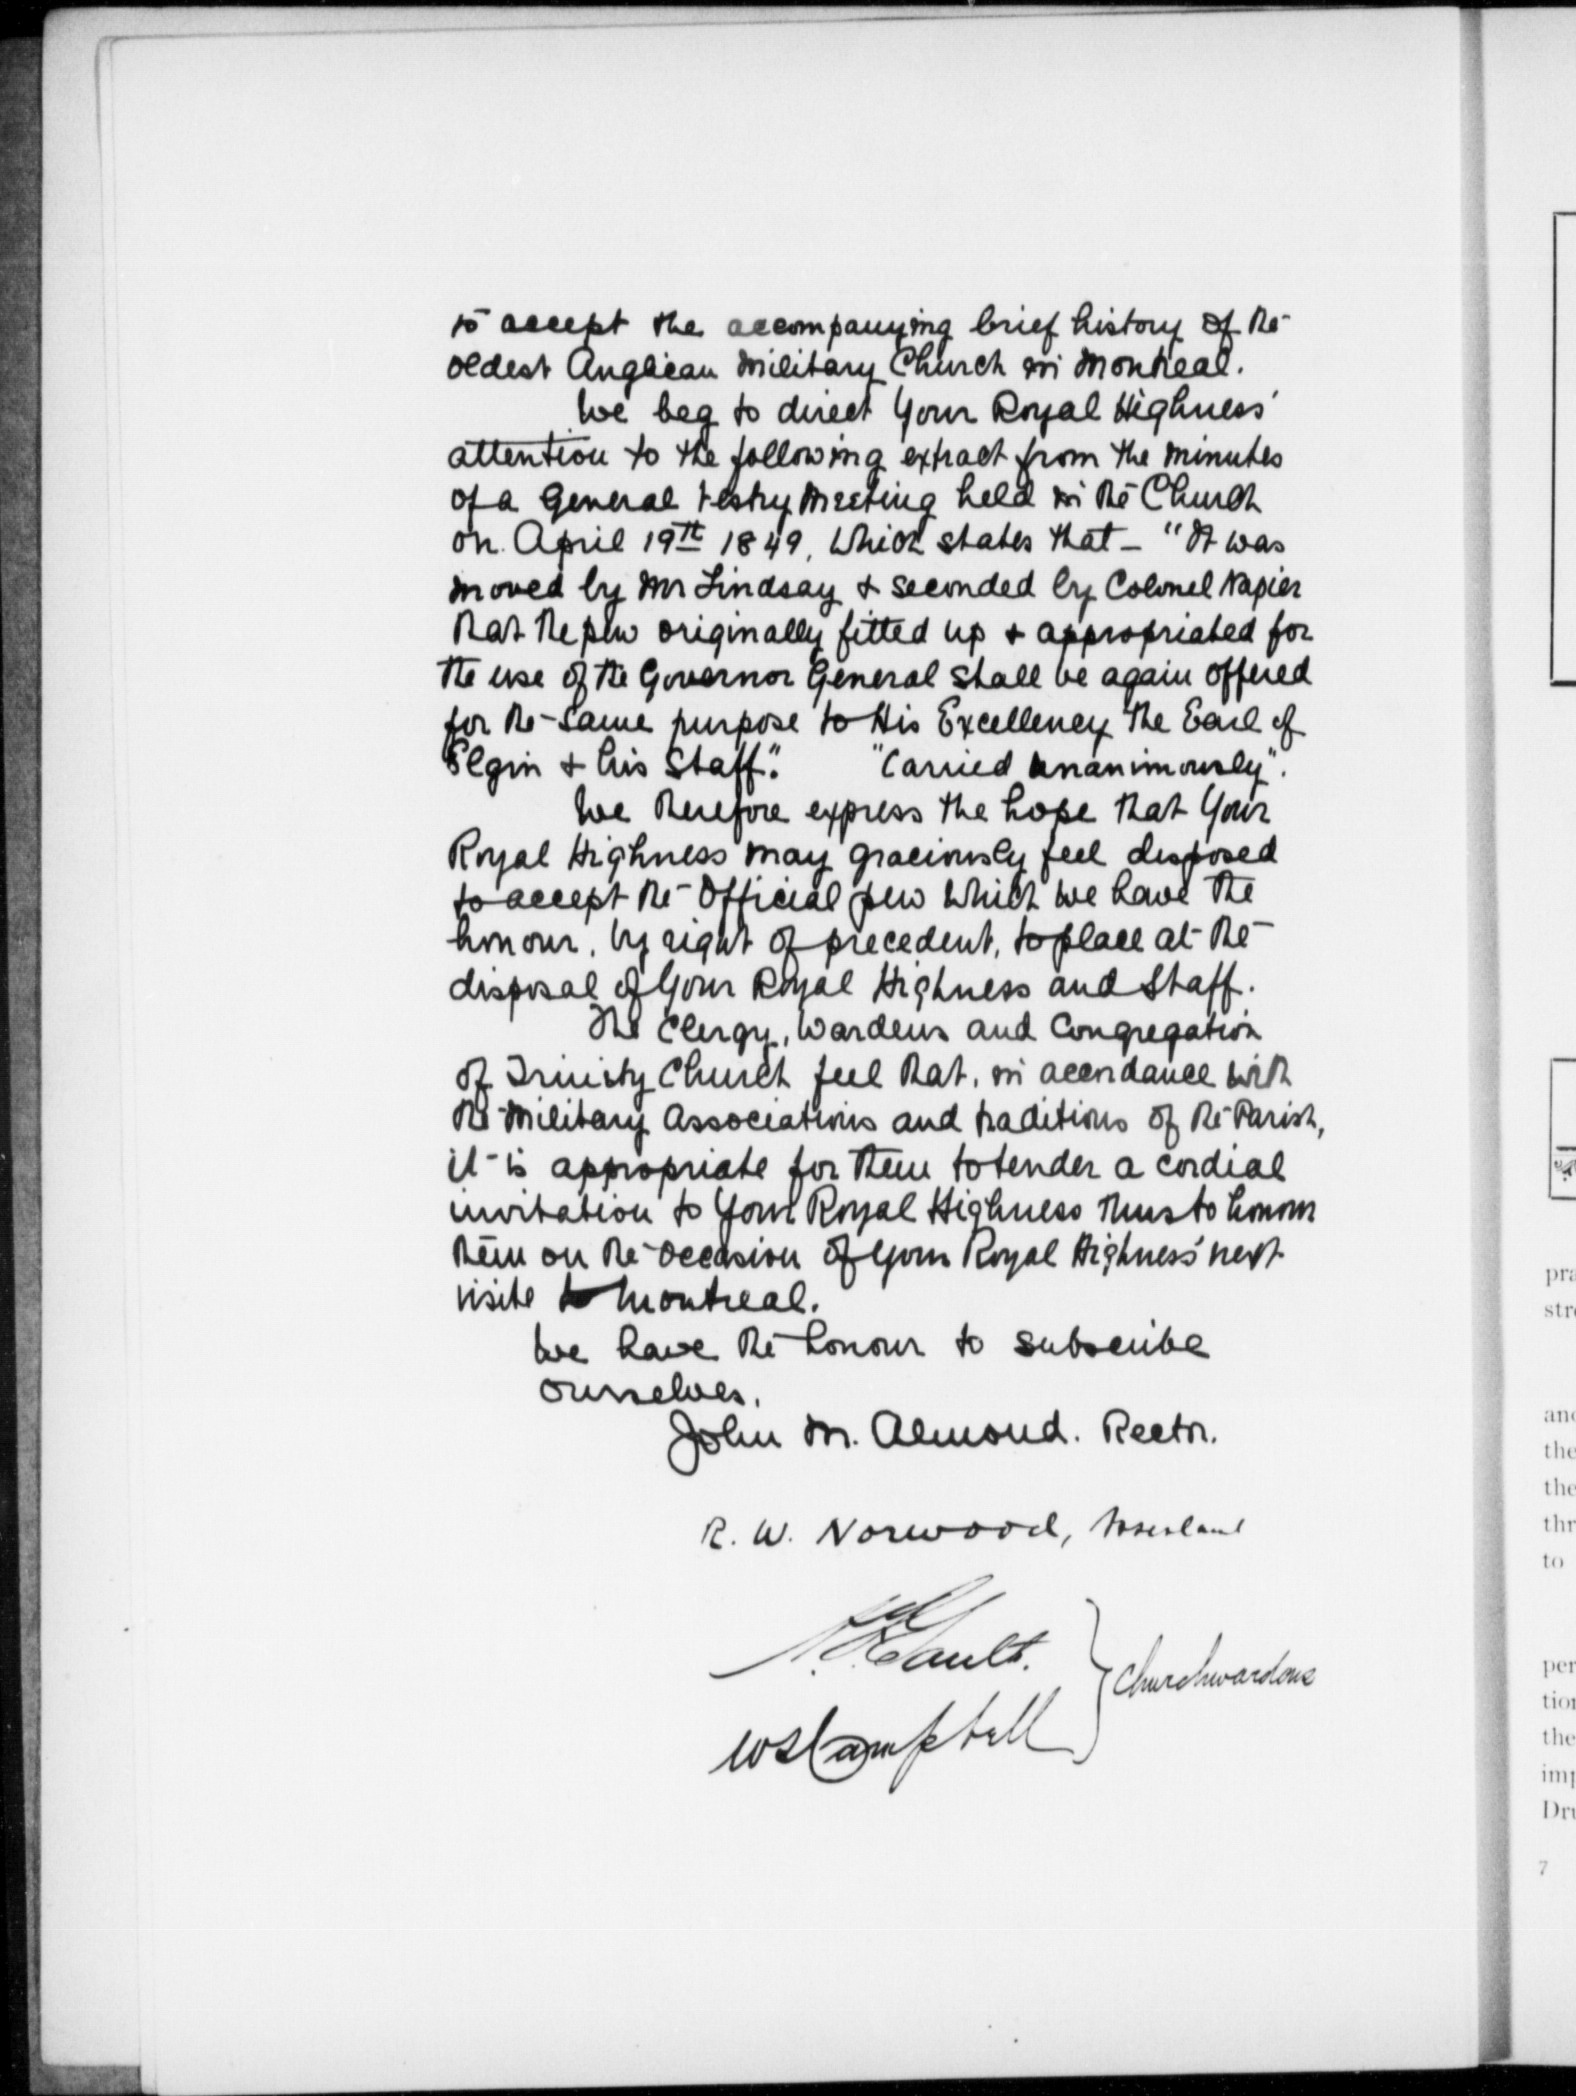 to accept the accompanying brief history of the
oldest Anglican Military Church in Montreal.
We beg to direct Your Royal Highness'
attention to the following extract from the minutes
of a General Vestry Meeting held in the Church
on April 19th 1849, which states that – "It was
moved by Mr Lindsay & seconded by Colonel Napier
that the pew originally fitted up & appropriated for
the use of the Governor General shall be again offered
for the same purpose to His Excellency the Earl of
Elgin & his Staff". "Carried unanimously".
We therefore express the hope that Your
Royal Highness may graciously feel disposed
to accept the Official pew which we have the
honour, by right of precedent, to place at the
disposal of Your Royal Highness and Staff.
The Clergy, Wardens and Congregation
of Trinity Church feel that, in accordance with
the Military Associations and traditions of the Parish,
it is appropriate for them to tender a cordial
invitation to Your Royal Highness thus to honour
them on the occasion of Your Royal Highness' next
visite to Montreal.
We have the honour to subscribe
ourselves.
John M. Almond. Rector.
R. W. Norwood,
Gault.
Churchwardens
WS Campbell
pra
str
and
the
the
thr
to
per
tion
the
imp
Dru
7